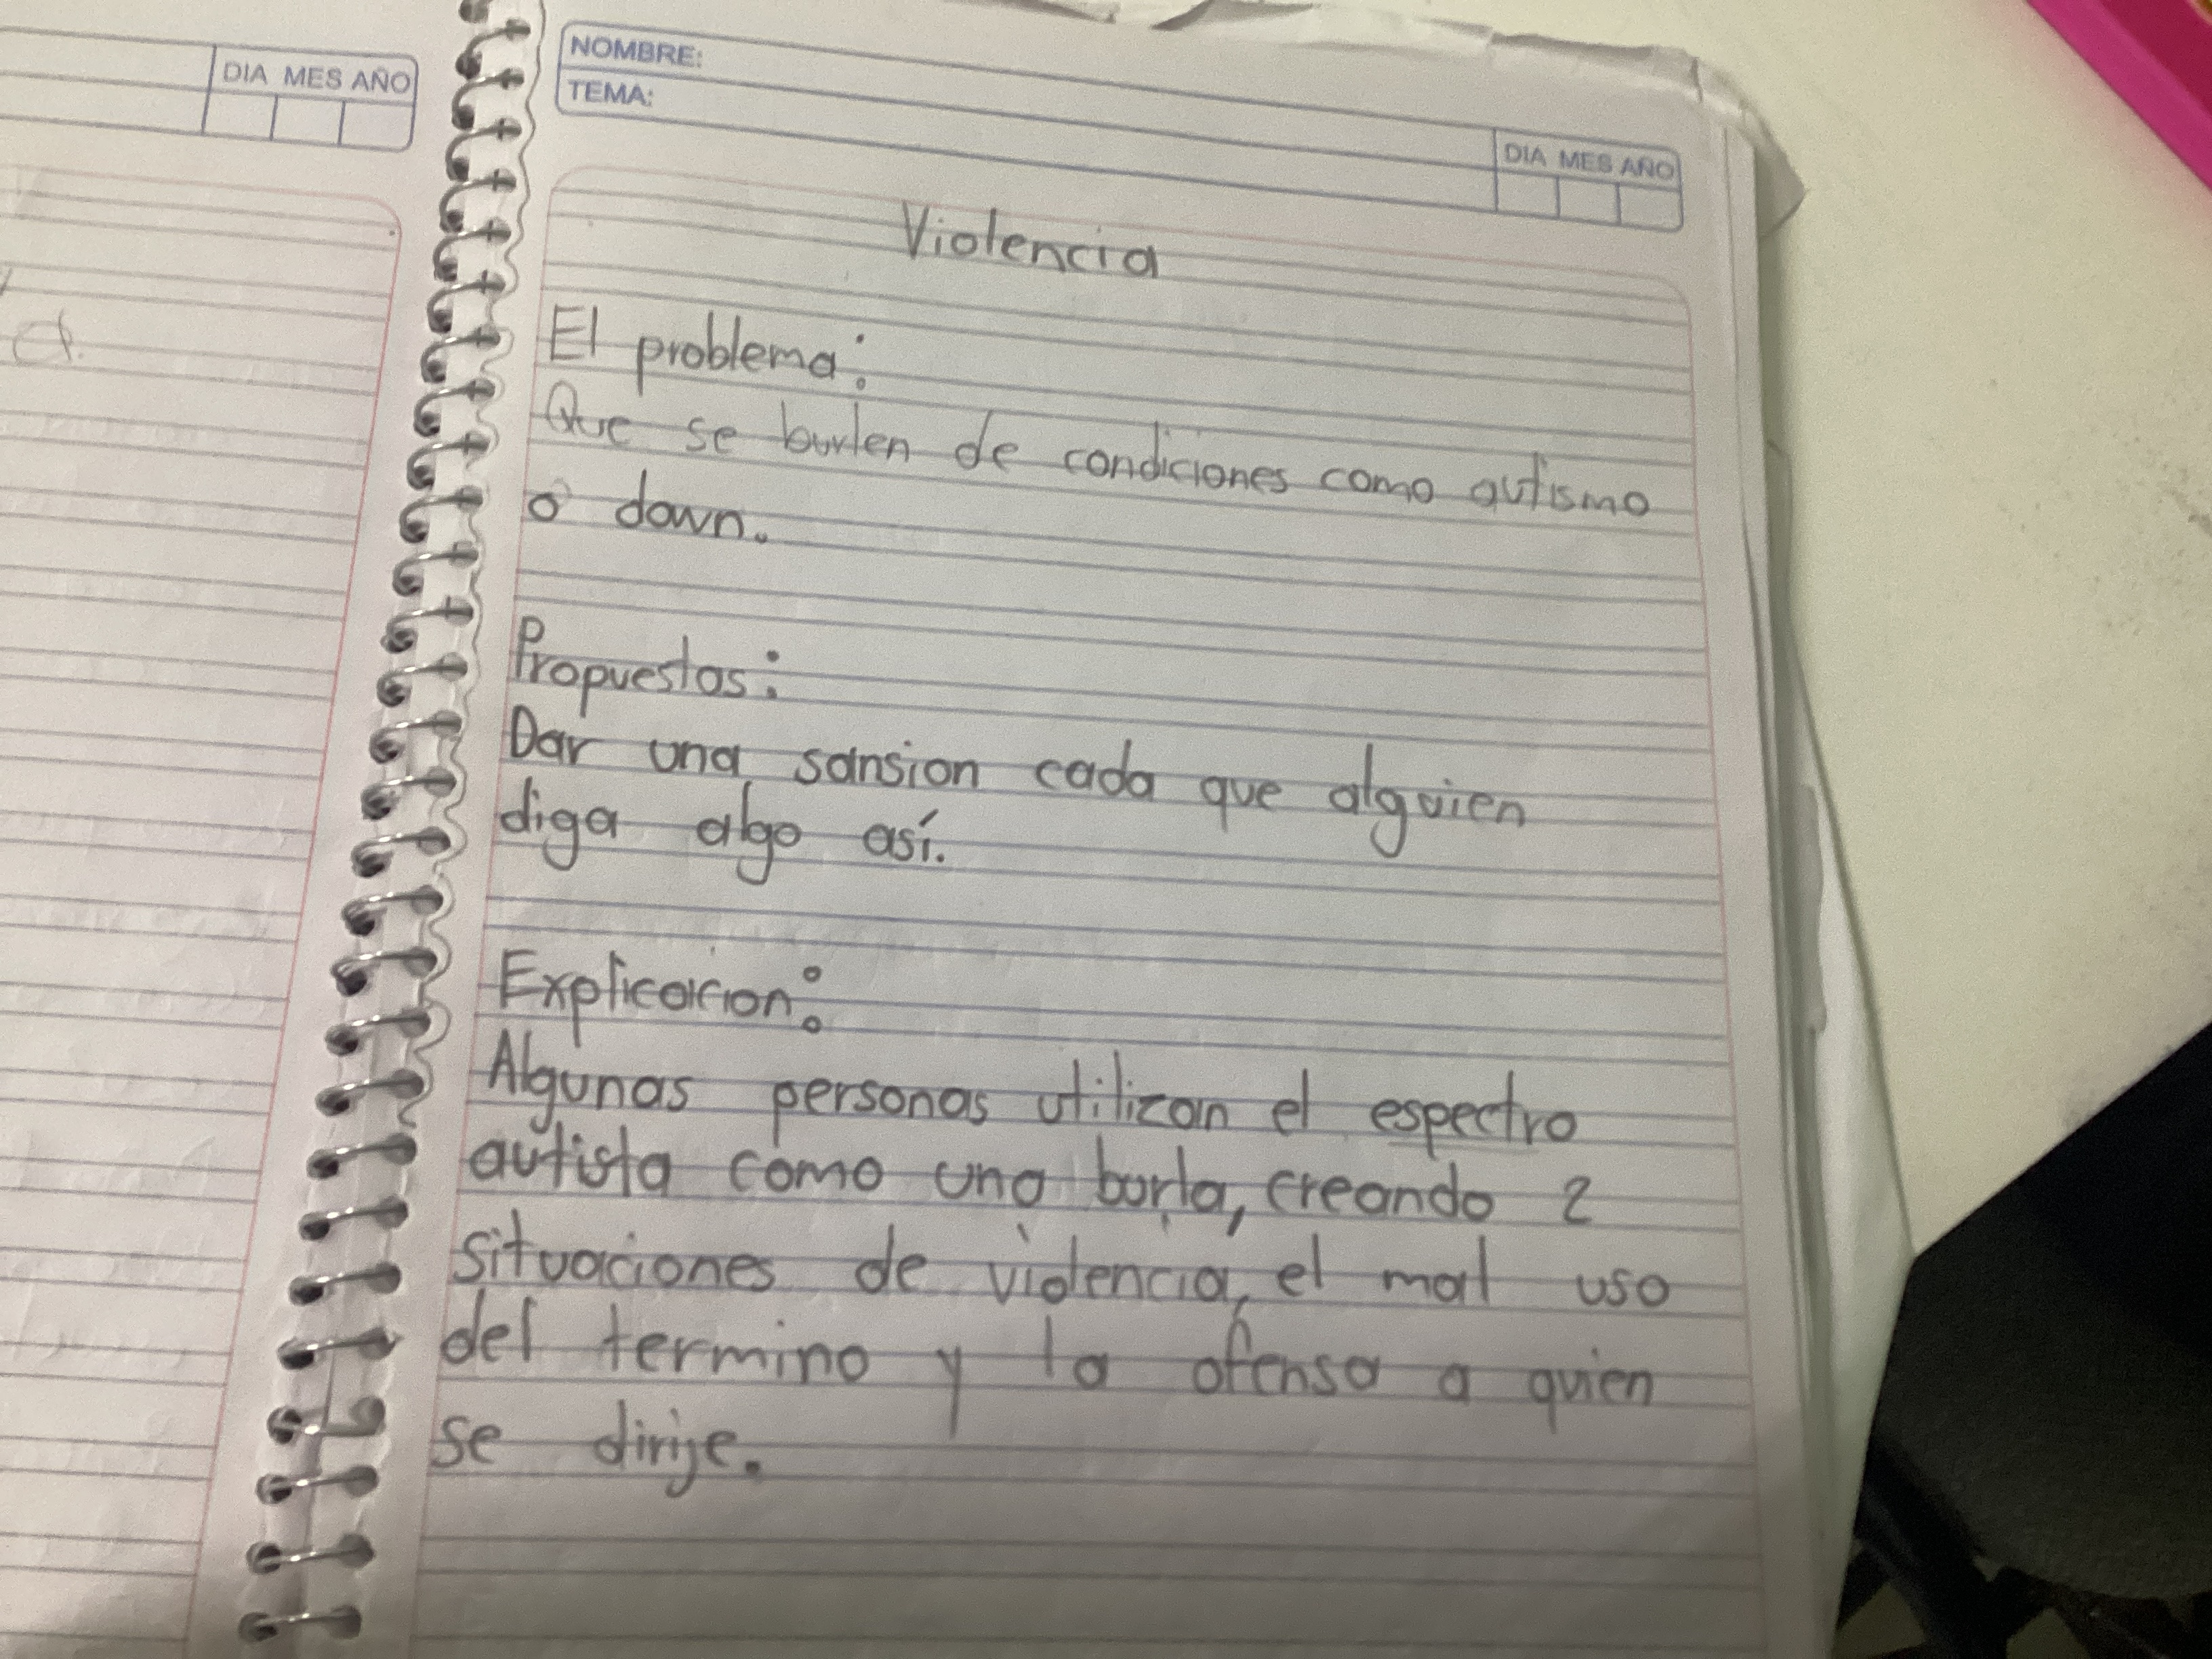 DIA MES AÑO
NOMBRE:
TEMA:
DIA MES AÑO
Violencia
El problema:
Que se burlen de condiciones como autismo
o down.
Propuestas:
Dar una sansion cada que alguien
diga algo así.
Explicacion:
Algunas personas utilizan el espectro
autista como una burla, creando 2
situaciones de violencia, el mal uso
del termino y la ofensa a quien
se dirije.